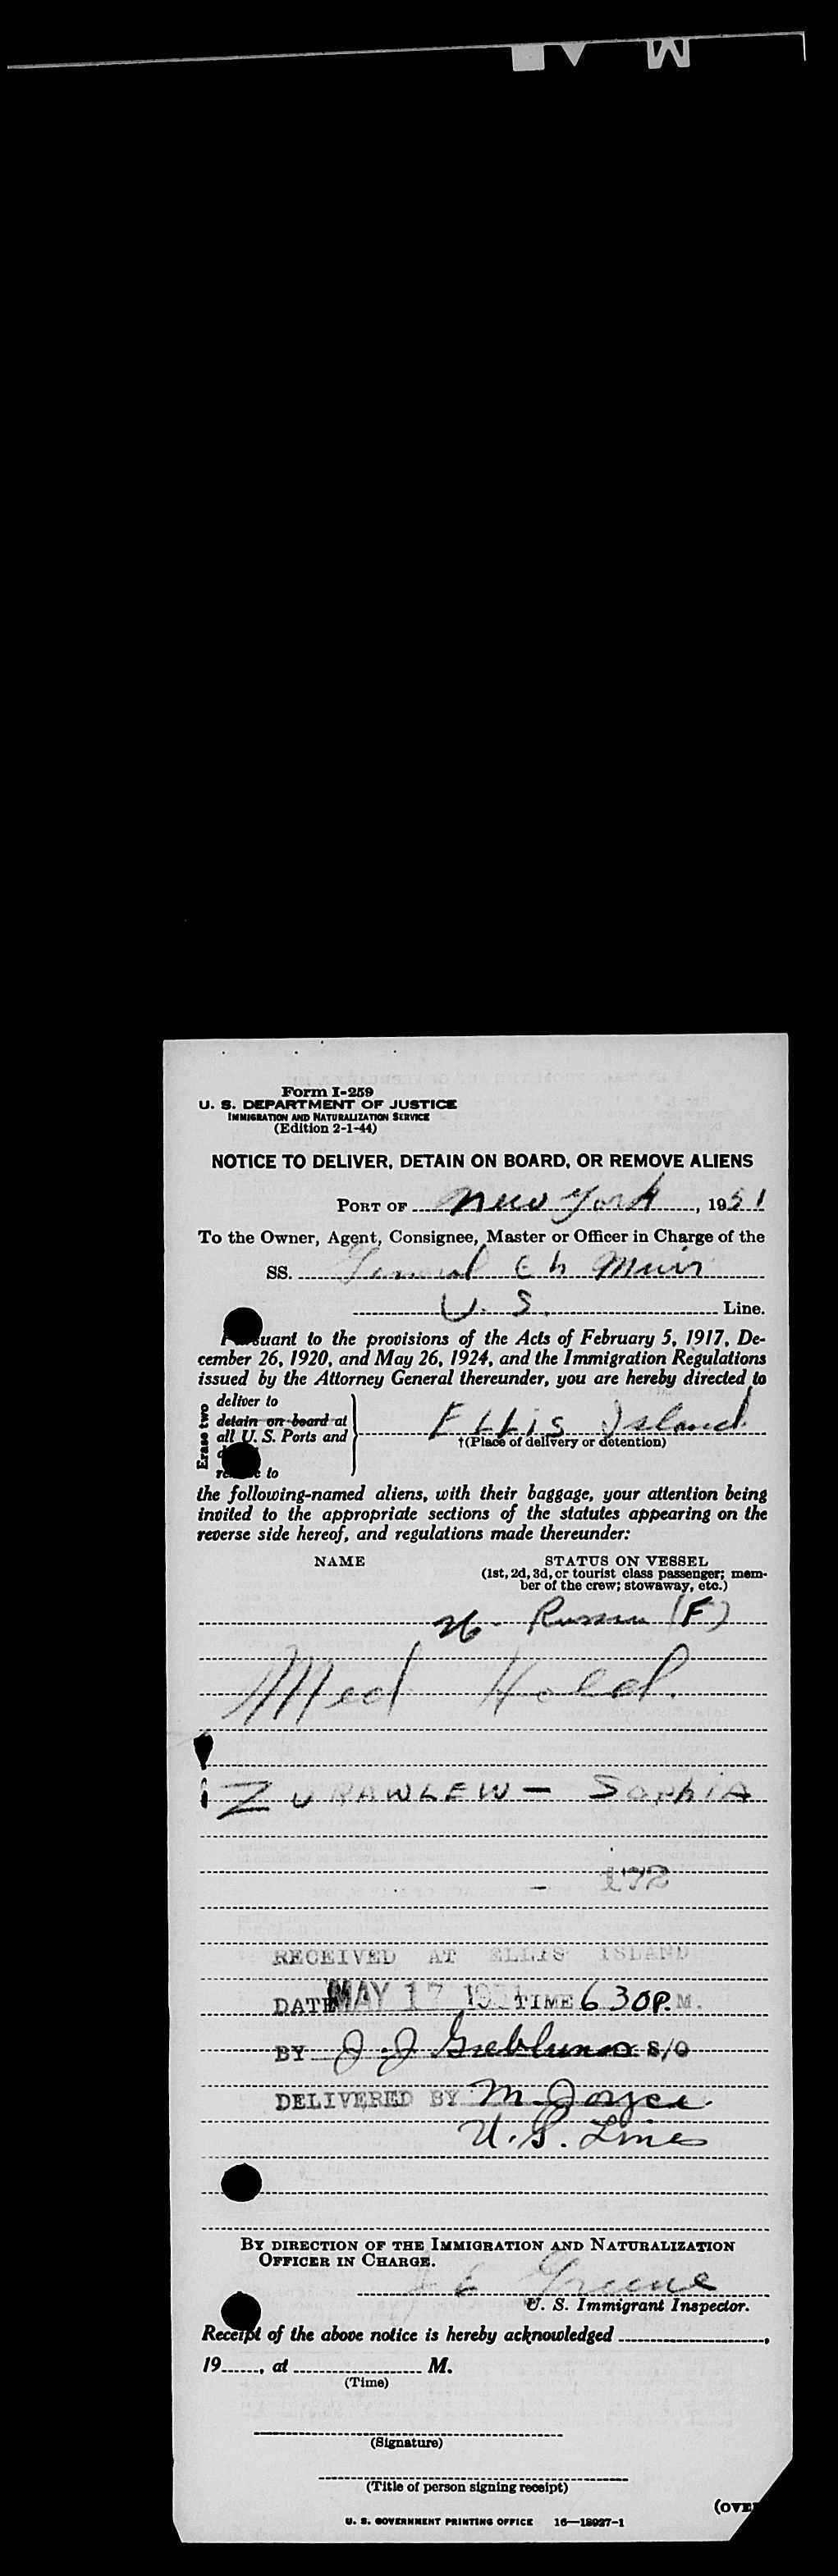 Form I-259
U. S. DEPARTMENT OF JUSTICE
IMMIGRATION AND NATURALIZATION SERVICE
(Edition 2-1-44)
NOTICE TO DELIVER, DETAIN ON BOARD, OR REMOVE ALIENS
PORT OF New York, 1951
To the Owner, Agent, Consignee, Master or Officer in Charge of the
SS. General C h Muir
U. S. Line.
Pursuant to the provisions of the Acts of February 5, 1917, De-
cember 26, 1920, and May 26, 1924, and the Immigration Regulations
issued by the Attorney General thereunder, you are hereby directed to
Erase two
deliver to
detain on board at
all U. S. Ports and
to
Ellis Island
†(Place of delivery or detention)
the following-named aliens, with their baggage, your attention being
invited to the appropriate sections of the statutes appearing on the
reverse side hereof, and regulations made thereunder:
NAME STATUS ON VESSEL
(1st, 2d, 3d, or tourist class passenger; mem-
ber of the crew; stowaway, etc.)
(F)
Med Held.
ZURAWLEW - SOPHIA
- 172
RECEIVED AT ELLIS ISLAND
DATE MAY 17 1951 TIME 6 30 P. M.
BY J. J. S/O
DELIVERED BY M. Joyce
U. S. Lines
BY DIRECTION OF THE IMMIGRATION AND NATURALIZATION
OFFICER IN CHARGE.
J E Greene
U. S. Immigrant Inspector.
Receipt of the above notice is hereby acknowledged ,
19 , at M.
(Time)
(Signature)
(Title of person signing receipt)
(OVE
U. S. GOVERNMENT PRINTING OFFICE 16—18927-1